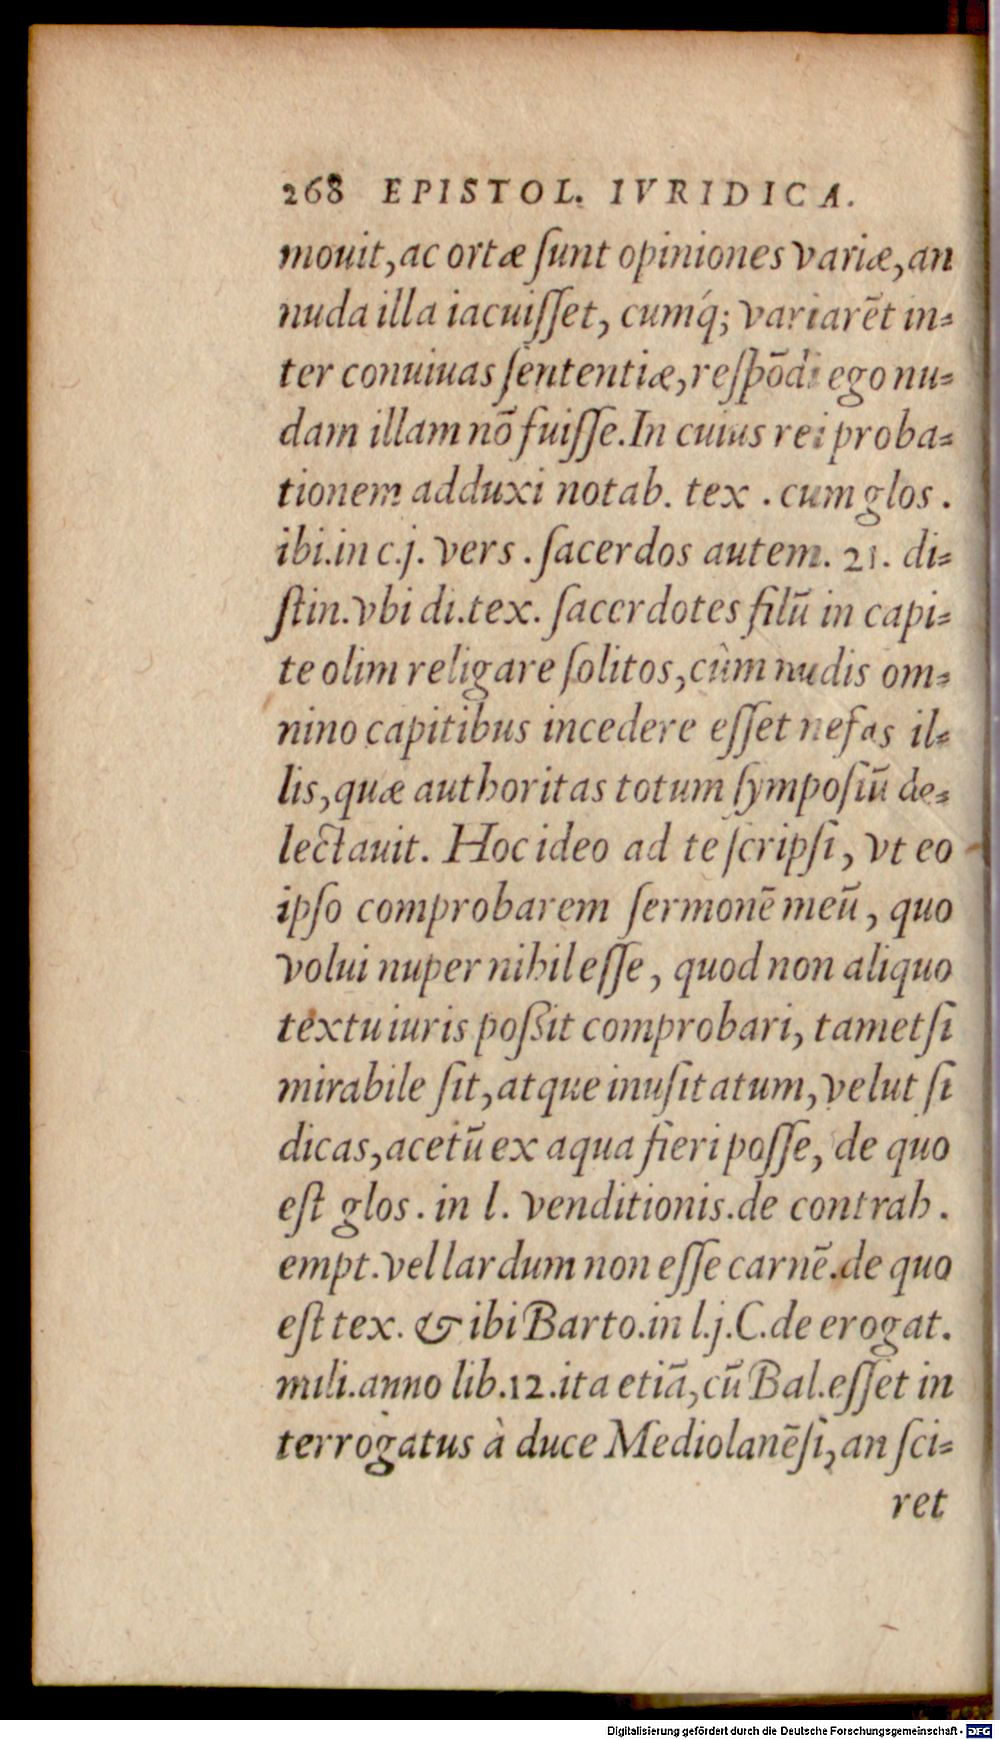 268 EPISTOL. IVRIDICA.
mouit, ac ortæ ſunt opiniones variæ, an
nuda illa iacuiſſet, cumq́; variarēt in=
ter conuiuas ſententiæ, reſpōdi ego nu=
dam illam nō fuiſſe. In cuius rei proba=
tionem adduxi notab. tex . cum glos .
ibi. in c. j. vers . ſacerdos autem. 21. di=
ſtin. vbi di. tex. ſacerdotes filū in capi=
te olim religare ſolitos, cùm nudis om=
nino capitibus incedere eſſet nefas il=
lis, quæ authoritas totum ſympoſiū de=
lectauit. Hoc ideo ad te ſcripſi, vt eo
ipſo comprobarem ſermonē meū, quo
volui nuper nihil eſſe, quod non aliquo
textu iuris poßit comprobari, tametſi
mirabile ſit, atque inuſitatum, velut ſi
dicas, acetū ex aqua fieri poſſe, de quo
eſt glos . in l. venditionis. de contrah .
empt. vel lardum non eſſe carnē. de quo
eſt tex. & ibi Barto. in l. j. C. de erogat.
mili. anno lib. 12. ita etiā, cū Bal. eſſet in
terrogatus à duce Mediolanēſi, an ſci=
ret
Digitalisierung gefördert durch die Deutsche Forschungsgemeinschaft - DFG